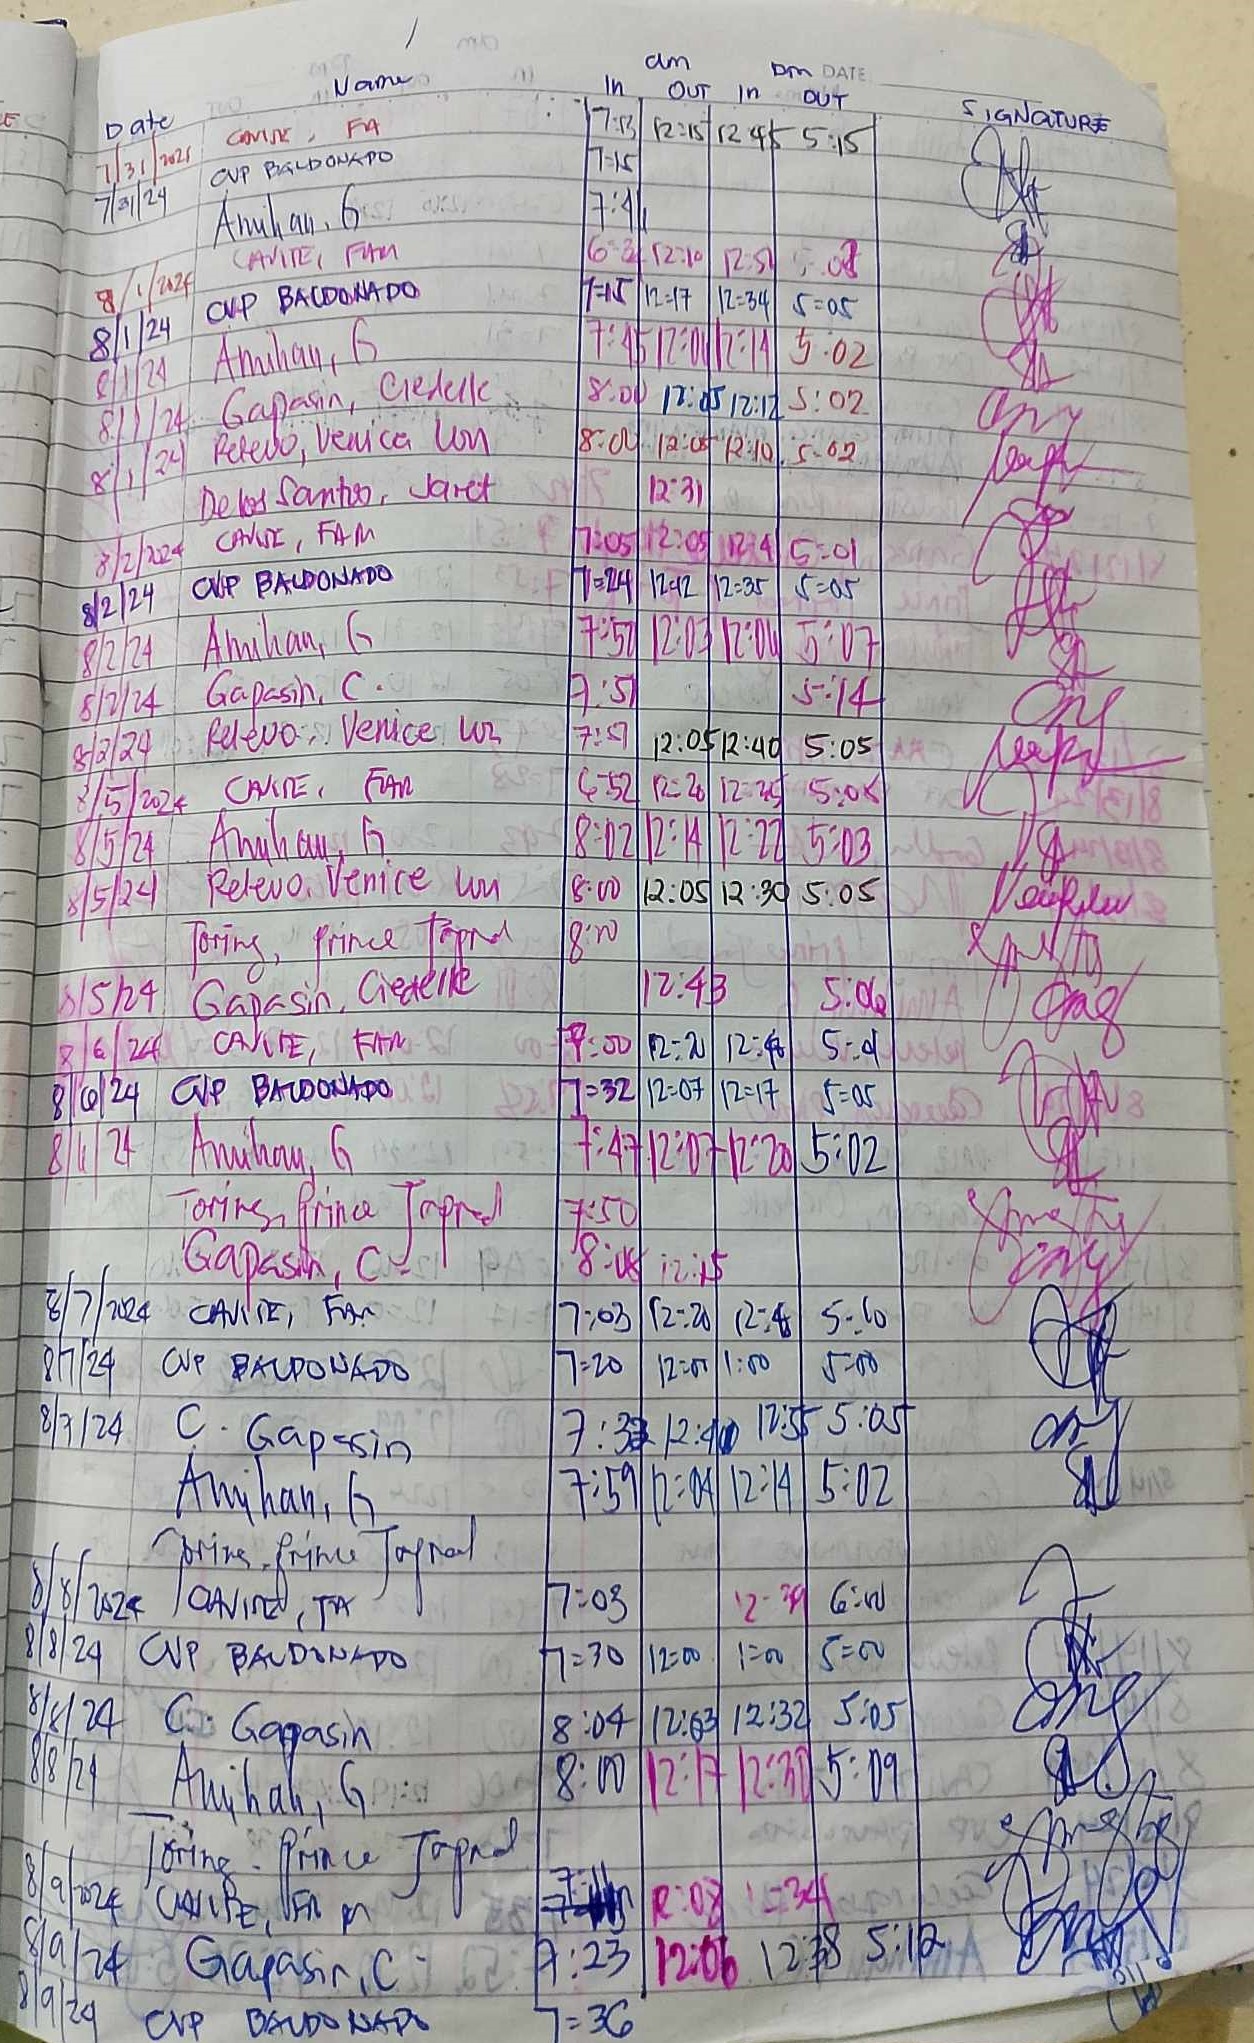 am pm DATE
Date Name In OUT In OUT SIGNATURE
7/31/2024 CAVITE, FA 7:13 12:15 12:45 5:15
7/31/24 CVP BALDONADO 7=15
Amihan, G 7:41
8/1/2024 CAVITE, FAM 12:10 12:51
8/1/24 CVP BALDONADO 7=15 12=17 12=34 5=05
8/1/24 Amihan, G 7:45 12:04 12:14 5:02
8/1/24 Gapasin, Ciedelle 8:00 12:05 12:12 5:02
8/1/24 Relevo, Venice Lou 12:05 12:10 5:02
De los Santos, Jaret 12:31
8/2/2024 CAVITE, FAM 7:05 12:05 5=01
8/2/24 CVP BALDONADO 7=24 12=12 12=35 5=05
8/2/24 Amihan, G 7:52 12:03 12:04 5:07
8/2/24 Gapasin, C. 7:51 5:14
8/2/24 Relevo, Venice Lou 7:51 12:05 12:40 5:05
8/5/2024 CAVITE, FAM 6=52 12=20 12=35
8/5/24 Amihan, G 8:02 12:14 12:22 5:03
8/5/24 Relevo, Venice Lou 8:00 12:05 12:30 5:05
Toring, Prince 8:00
8/5/24 Gapasin, Ciedelle 12:43 5:06
8/6/24 CAVITE, FAM 7:00
8/6/24 CVP BALDONADO 7=32 12=07 12=17 5=05
8/6/24 Amihan, G 7:47 12:07 12:20 5:02
Toring, Prince 7:50
Gapasin, C 8:08 12:15
8/7/2024 CAVITE, FAM 7:03 12=20 5=10
8/7/24 CVP BALDONADO 7=20 12=00 1:00 5=00
8/7/24 C. Gapasin 12:55 5:05
Amihan, G 7:59 12:04 12:14 5:02
Toring, Prince
8/8/2024 CAVITE, FA 7:03 12=39 6:00
8/8/24 CVP BALDONADO 7=30 12=00 1=00 5=00
8/8/24 C. Gapasin 8:04 12:03 12:32 5:05
8/8/24 Amihan, G 8:00 12:17 12:30 5:09
Toring, Prince
8/9/2024 CAVITE, FAM 12:08 1=34
8/9/24 Gapasin, C. 7:23 12:06 12:38 5:12
8/9/24 CVP BALDONADO 7=36